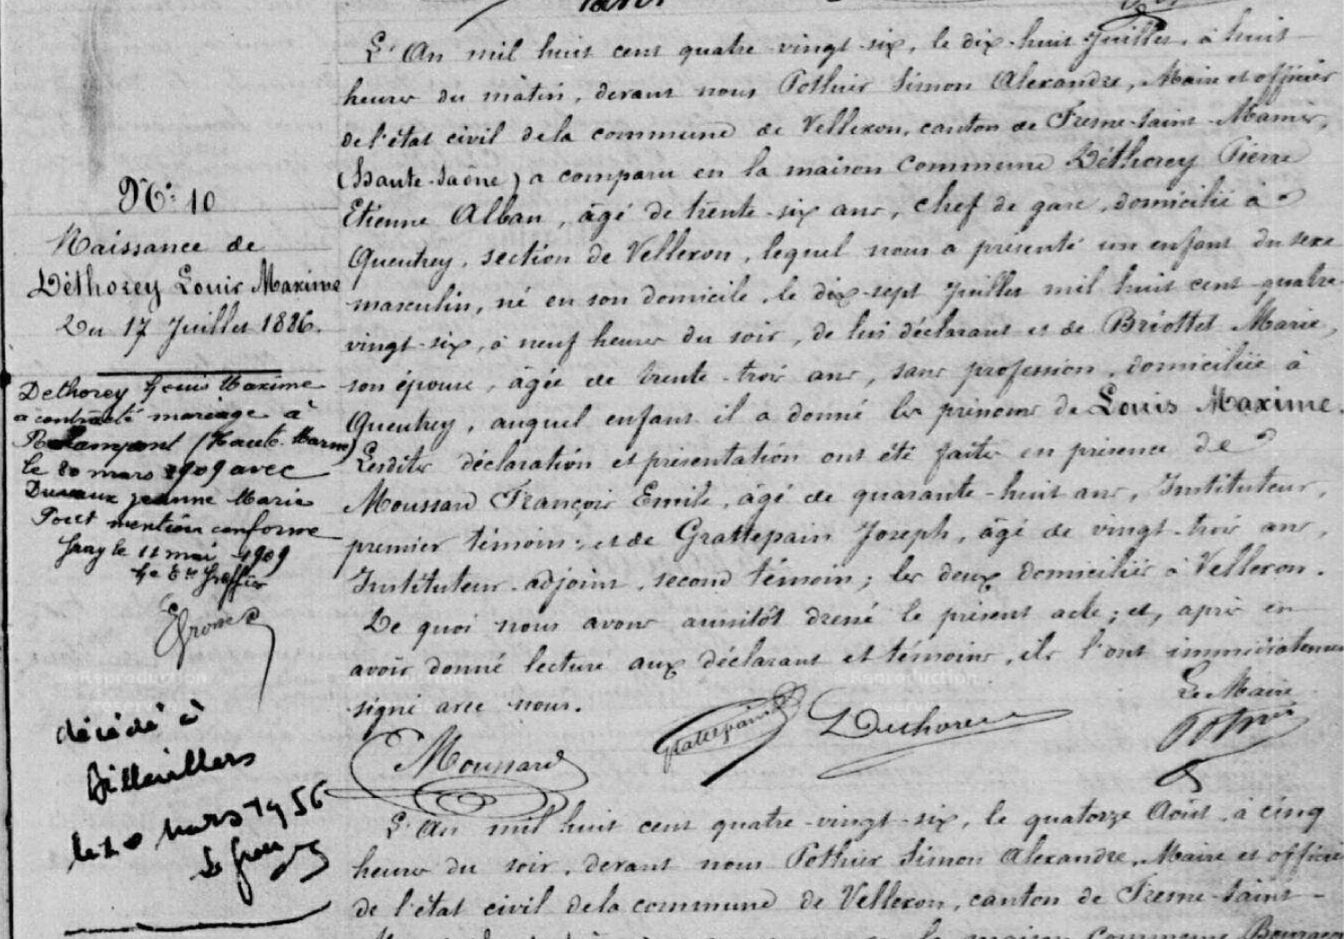 N° 10
Naissance de
Déthorey Louis Maxime
Du 17 Juillet 1886.
Dethorey Louis Maxime
a contracté mariage à
Rolampont (Haute Marne)
le 20 mars 1909 avec
Duvaux Jeanne Marie
Pour mention conforme
Gray le 11 mai 1909
Le Greffier
décédé à
Billevillers
le 10 mars 1956
Le
L'An mil huit cent quatre-vingt-six, le dix-huit Juillet, à huit
heures du matin, devant nous Pothier Simon Alexandre, Maire et officier
de l'état civil de la commune de Vellexon, canton de Fresne-Saint-Mamès,
(Haute-Saône) a comparu en la maison commune Déthorey Pierre
Etienne Alban, âgé de trente-six ans, chef de gare, domicilié à
Queutrey, section de Vellexon, lequel nous a présenté un enfant du sexe
masculin, né en son domicile, le dix-sept Juillet mil huit cent quatre-
vingt-six, à neuf heures du soir, de lui déclarant et de Briottet Marie,
son épouse, âgée de trente-trois ans, sans profession, domiciliée à
Queutrey, auquel enfant il a donné les prénoms de Louis Maxime
Lesdites déclaration et présentation ont été faites en présence de
Moussard François Emile, âgé de quarante-huit ans, Instituteur,
premier témoin; et de Grattepain Joseph, âgé de vingt-trois ans,
Instituteur-adjoint, second témoin; les deux domiciliés à Vellexon.
De quoi nous avons aussitôt dressé le présent acte; et, après en
avoir donné lecture aux déclarant et témoins, ils l'ont immédiatement
signé avec nous.
Le Maire
Moussard
Grattepain
Dethorey
Pothier
L'An mil huit cent quatre-vingt-six, le quatorze Août, à cinq
heures du soir, devant nous Pothier Simon Alexandre, Maire et officier
de l'état civil de la commune de Vellexon, canton de Fresne-Saint-
la maison commune
©Reproduction
réservée
©Reproduction
réservée